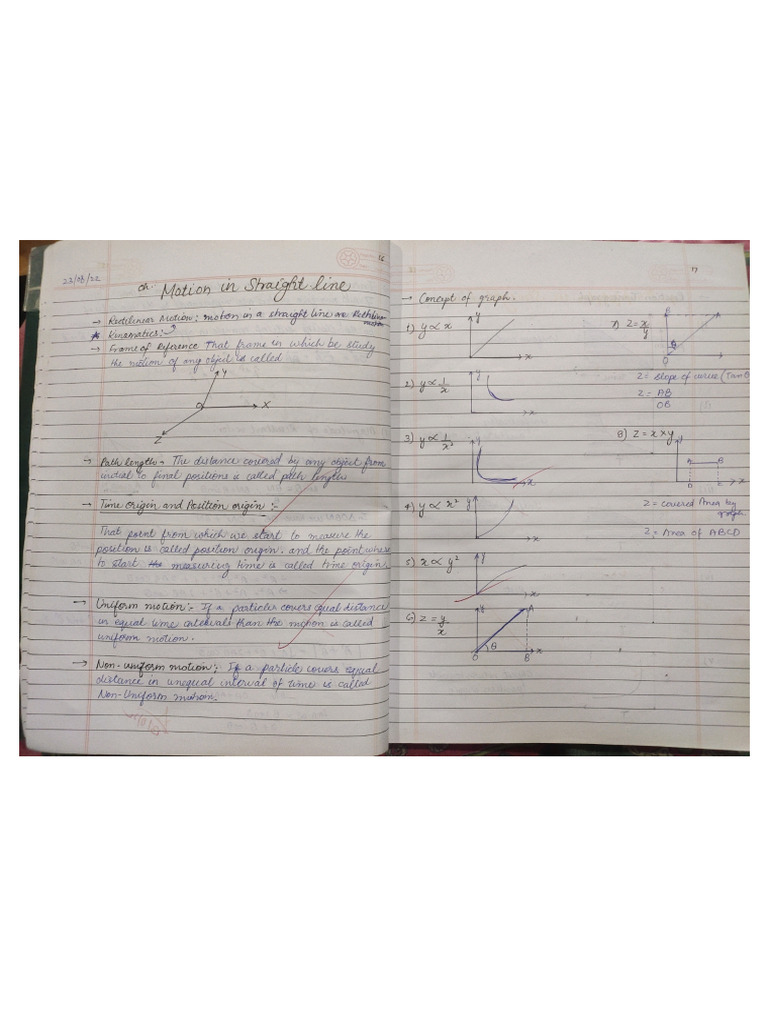 16
22/08/22
Ch. Motion in Straight line
→ Rectilinear Motion; motion in a straight line are Rectilinear motion
* Kinematics :-
→ Frame of Reference That frame in which be study
the motion of any object is called
Y
O
X
Z
→ Path length - The distance covered by any object from
initial to final positions is called path length
→ Time origin and Position origin :-
That point from which we start to measure the
position is called position origin. and the point where
to start the measuring time is called time origin.
→ Uniform motion :- If a particles covers equal distance
in equal time intervals than the motion is called
uniform motion.
→ Non-uniform motion; If a particle covers equal
distance in unequal interval of time is called
Non-Uniform motion.
17
→ Concept of graph.
1) y ∝ x
y
x
2) y ∝ 1/x
y
x
3) y ∝ 1/x²
y
x
4) y ∝ x²
y
x
5) x ∝ y²
y
x
6) z = y/x
y
A
θ
O
B
x
7) Z = x/y
B
A
θ
O
x
Z = slope of curve (Tan
Z = AB
OB
8) Z = x × y
y
A
B
D
x
Z = covered Area by
graph
Z = Area of ABCD